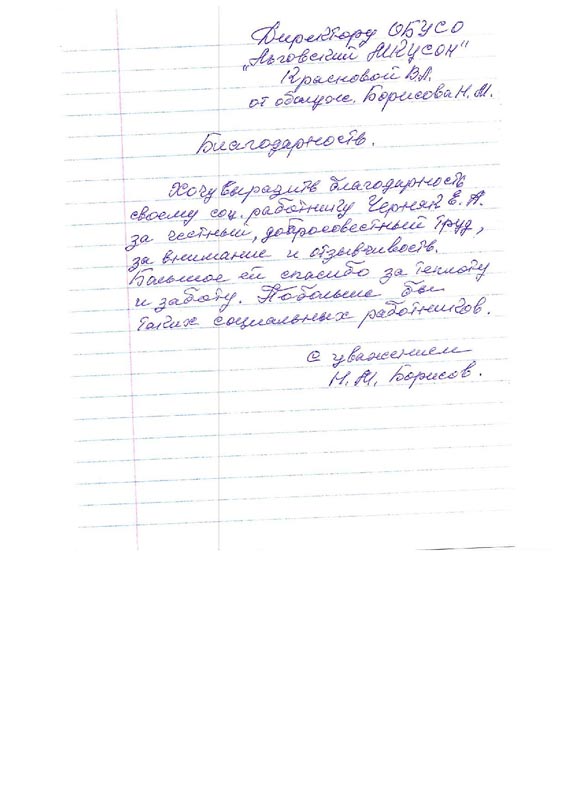 Директору ОБУСО
"Льговский МКЦСОН"
Красновой В.А.
от обслуж. Борисова Н.М.
Благодарность.
Хочу выразить благодарность
своему соц. работнику Черняк Е.А.
за честный, добросовестный труд,
за внимание и отзывчивость.
Большое ей спасибо за теплоту
и заботу. Побольше бы
таких социальных работников.
С уважением
Н.М. Борисов.